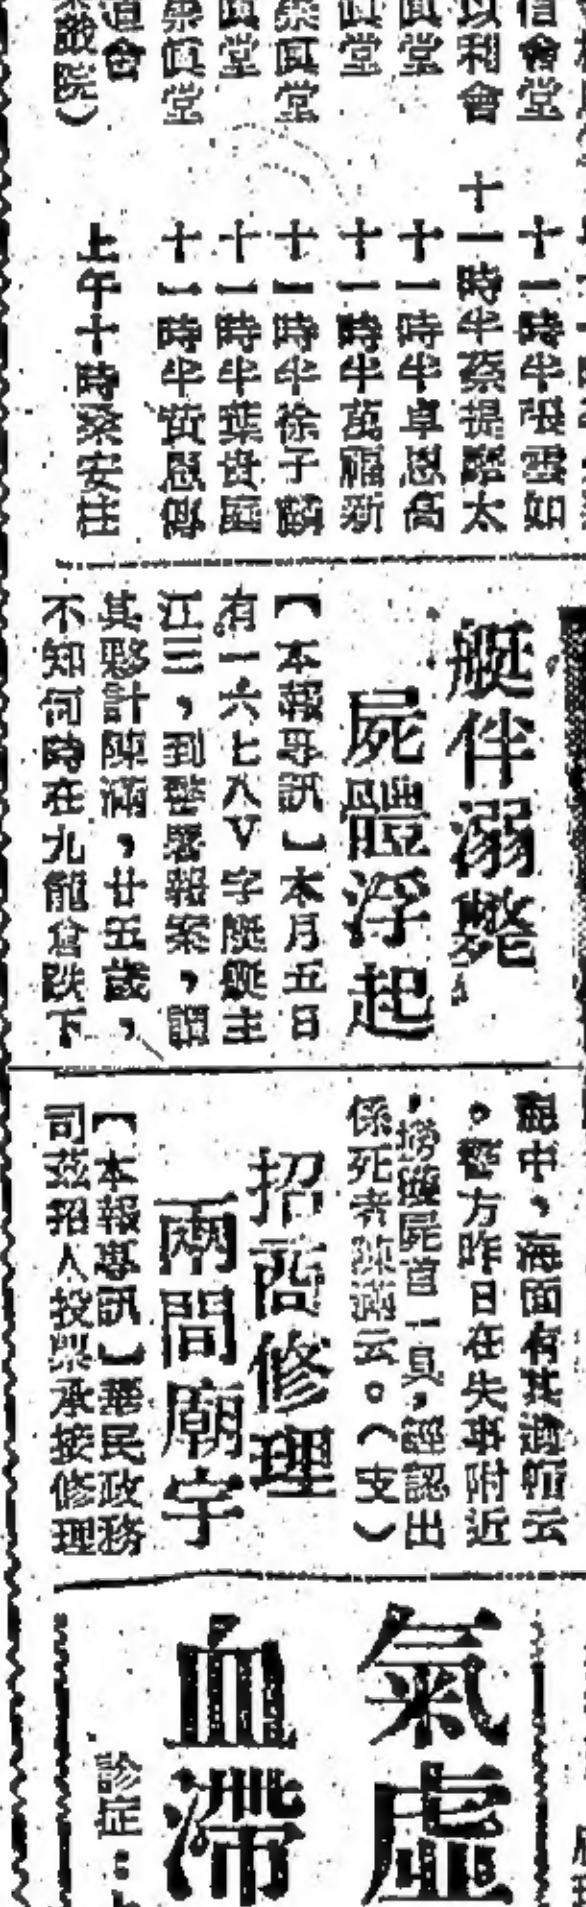 信會堂
十一時半張雲如
以利會
十一時半蔡提摩太
眞堂
十一時半卓恩高
眞堂
十一時半萬福新
眞堂
十一時半徐子麟
眞堂
十一時半葉貴庭
眞堂
十一時半黃恩傳
道會
戲院）
上午十時
艇伴溺斃
屍體浮起
【本報專訊】本月五日
有一六七八V字艇艇主
江三，到警署報案，謂
其夥計陳滿，廿五歲，
不知何時在九龍倉跌下
海中，海面有其遺帽云
。警方昨日在失事附近
，撈獲屍首一具，經認出
係死者陳滿云。（支）
招商修理
兩間廟宇
【本報專訊】華民政務
司茲招人投票承接修理
氣虛
血滯
診症：上